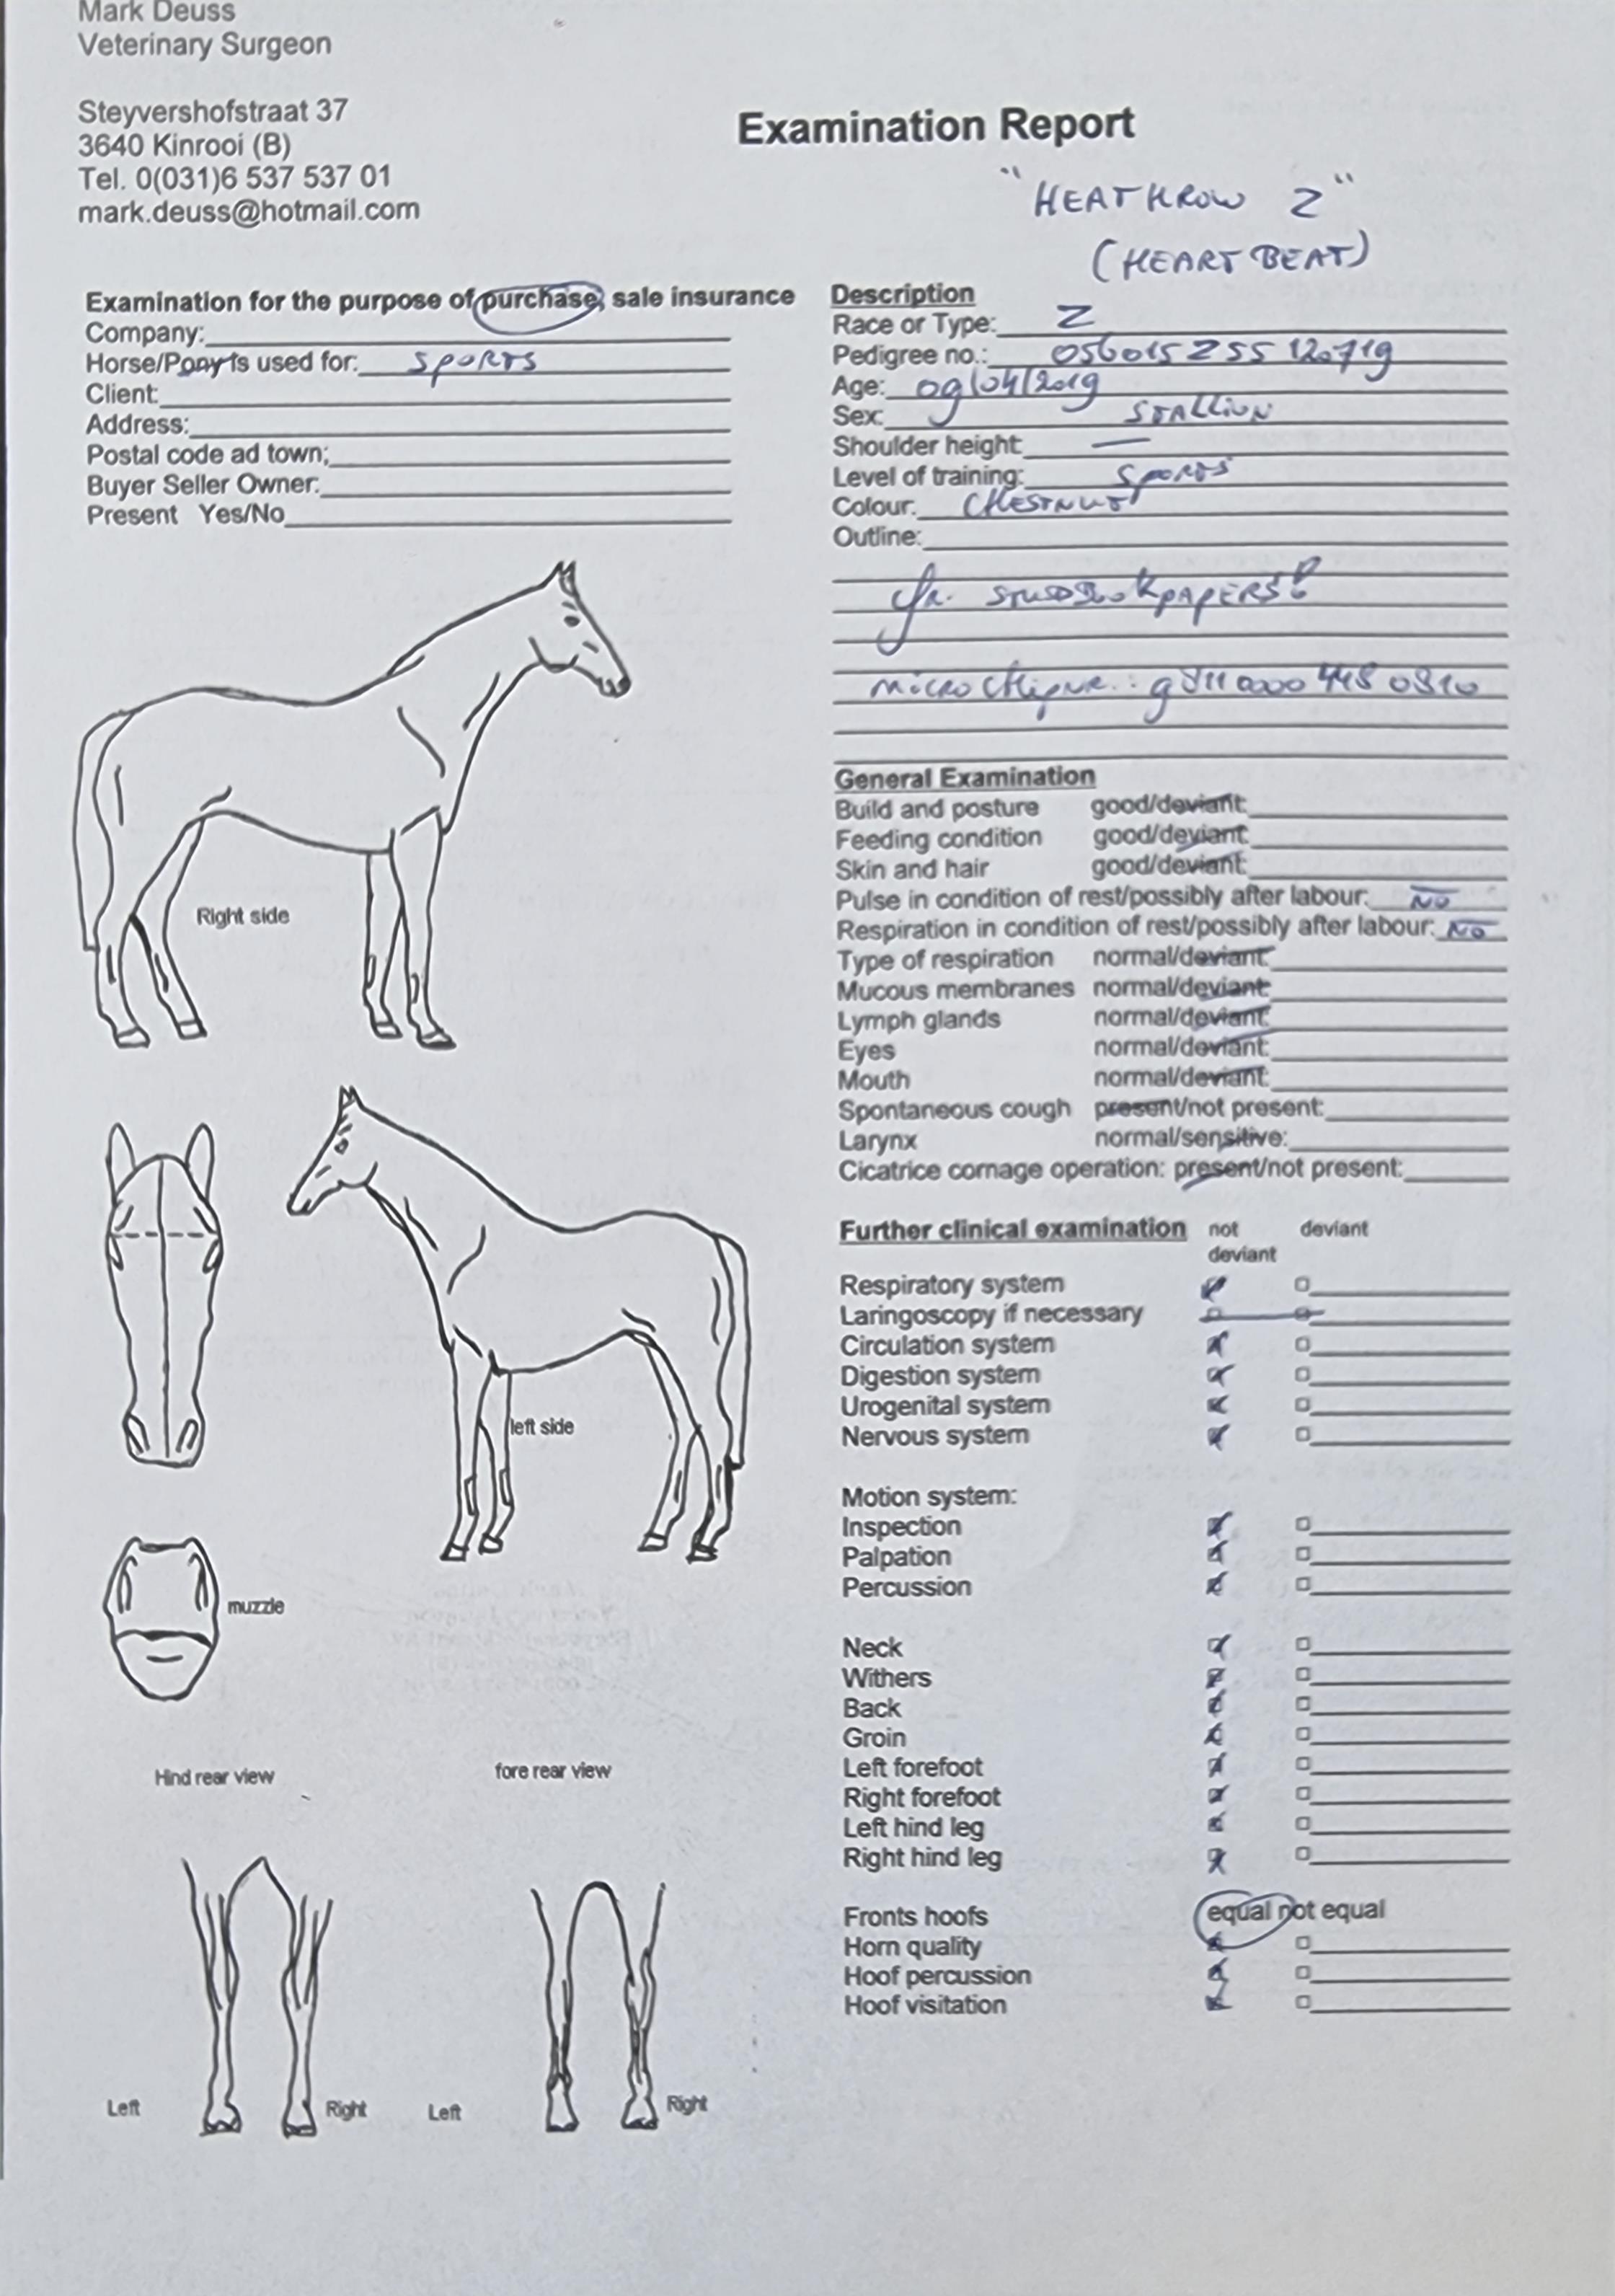 Mark Deuss
Veterinary Surgeon
Steyvershofstraat 37
3640 Kinrooi (B)
Tel. 0(031)6 537 537 01
mark.deuss@hotmail.com
Examination Report
"HEATHROW Z"
(HEARTBEAT)
Examination for the purpose of purchase, sale insurance
Company:
Horse/Pony is used for: SPORTS
Client:
Address:
Postal code ad town;
Buyer Seller Owner:
Present Yes/No
Description
Race or Type: Z
Pedigree no.: 056015Z55120719
Age: 09/04/2019
Sex: STALLION
Shoulder height: —
Level of training: SPORTS
Colour: CHESTNUT
Outline:
STUDBOOKPAPERS!
microchipnr.: 981100004480810
General Examination
Build and posture good/deviant:
Feeding condition good/deviant:
Skin and hair good/deviant:
Pulse in condition of rest/possibly after labour: NO
Respiration in condition of rest/possibly after labour: NO
Type of respiration normal/deviant:
Mucous membranes normal/deviant:
Lymph glands normal/deviant:
Eyes normal/deviant:
Mouth normal/deviant:
Spontaneous cough present/not present:
Larynx normal/sensitive:
Cicatrice cornage operation: present/not present:
Further clinical examination not deviant deviant
Respiratory system
Laringoscopy if necessary
Circulation system
Digestion system
Urogenital system
Nervous system
Motion system:
Inspection
Palpation
Percussion
Neck
Withers
Back
Groin
Left forefoot
Right forefoot
Left hind leg
Right hind leg
Fronts hoofs equal not equal
Horn quality
Hoof percussion
Hoof visitation
Right side
left side
muzzle
Hind rear view
fore rear view
Left
Right
Left
Right